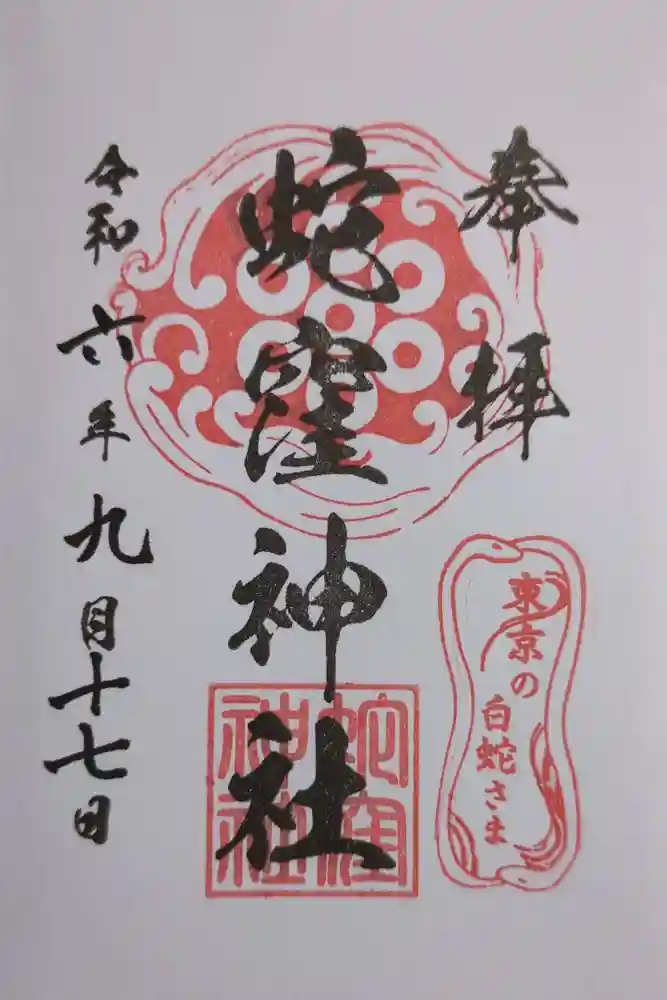 奉拝
蛇窪神社
蛇窪
神社
東京の
白蛇さま
令和六年九月十七日